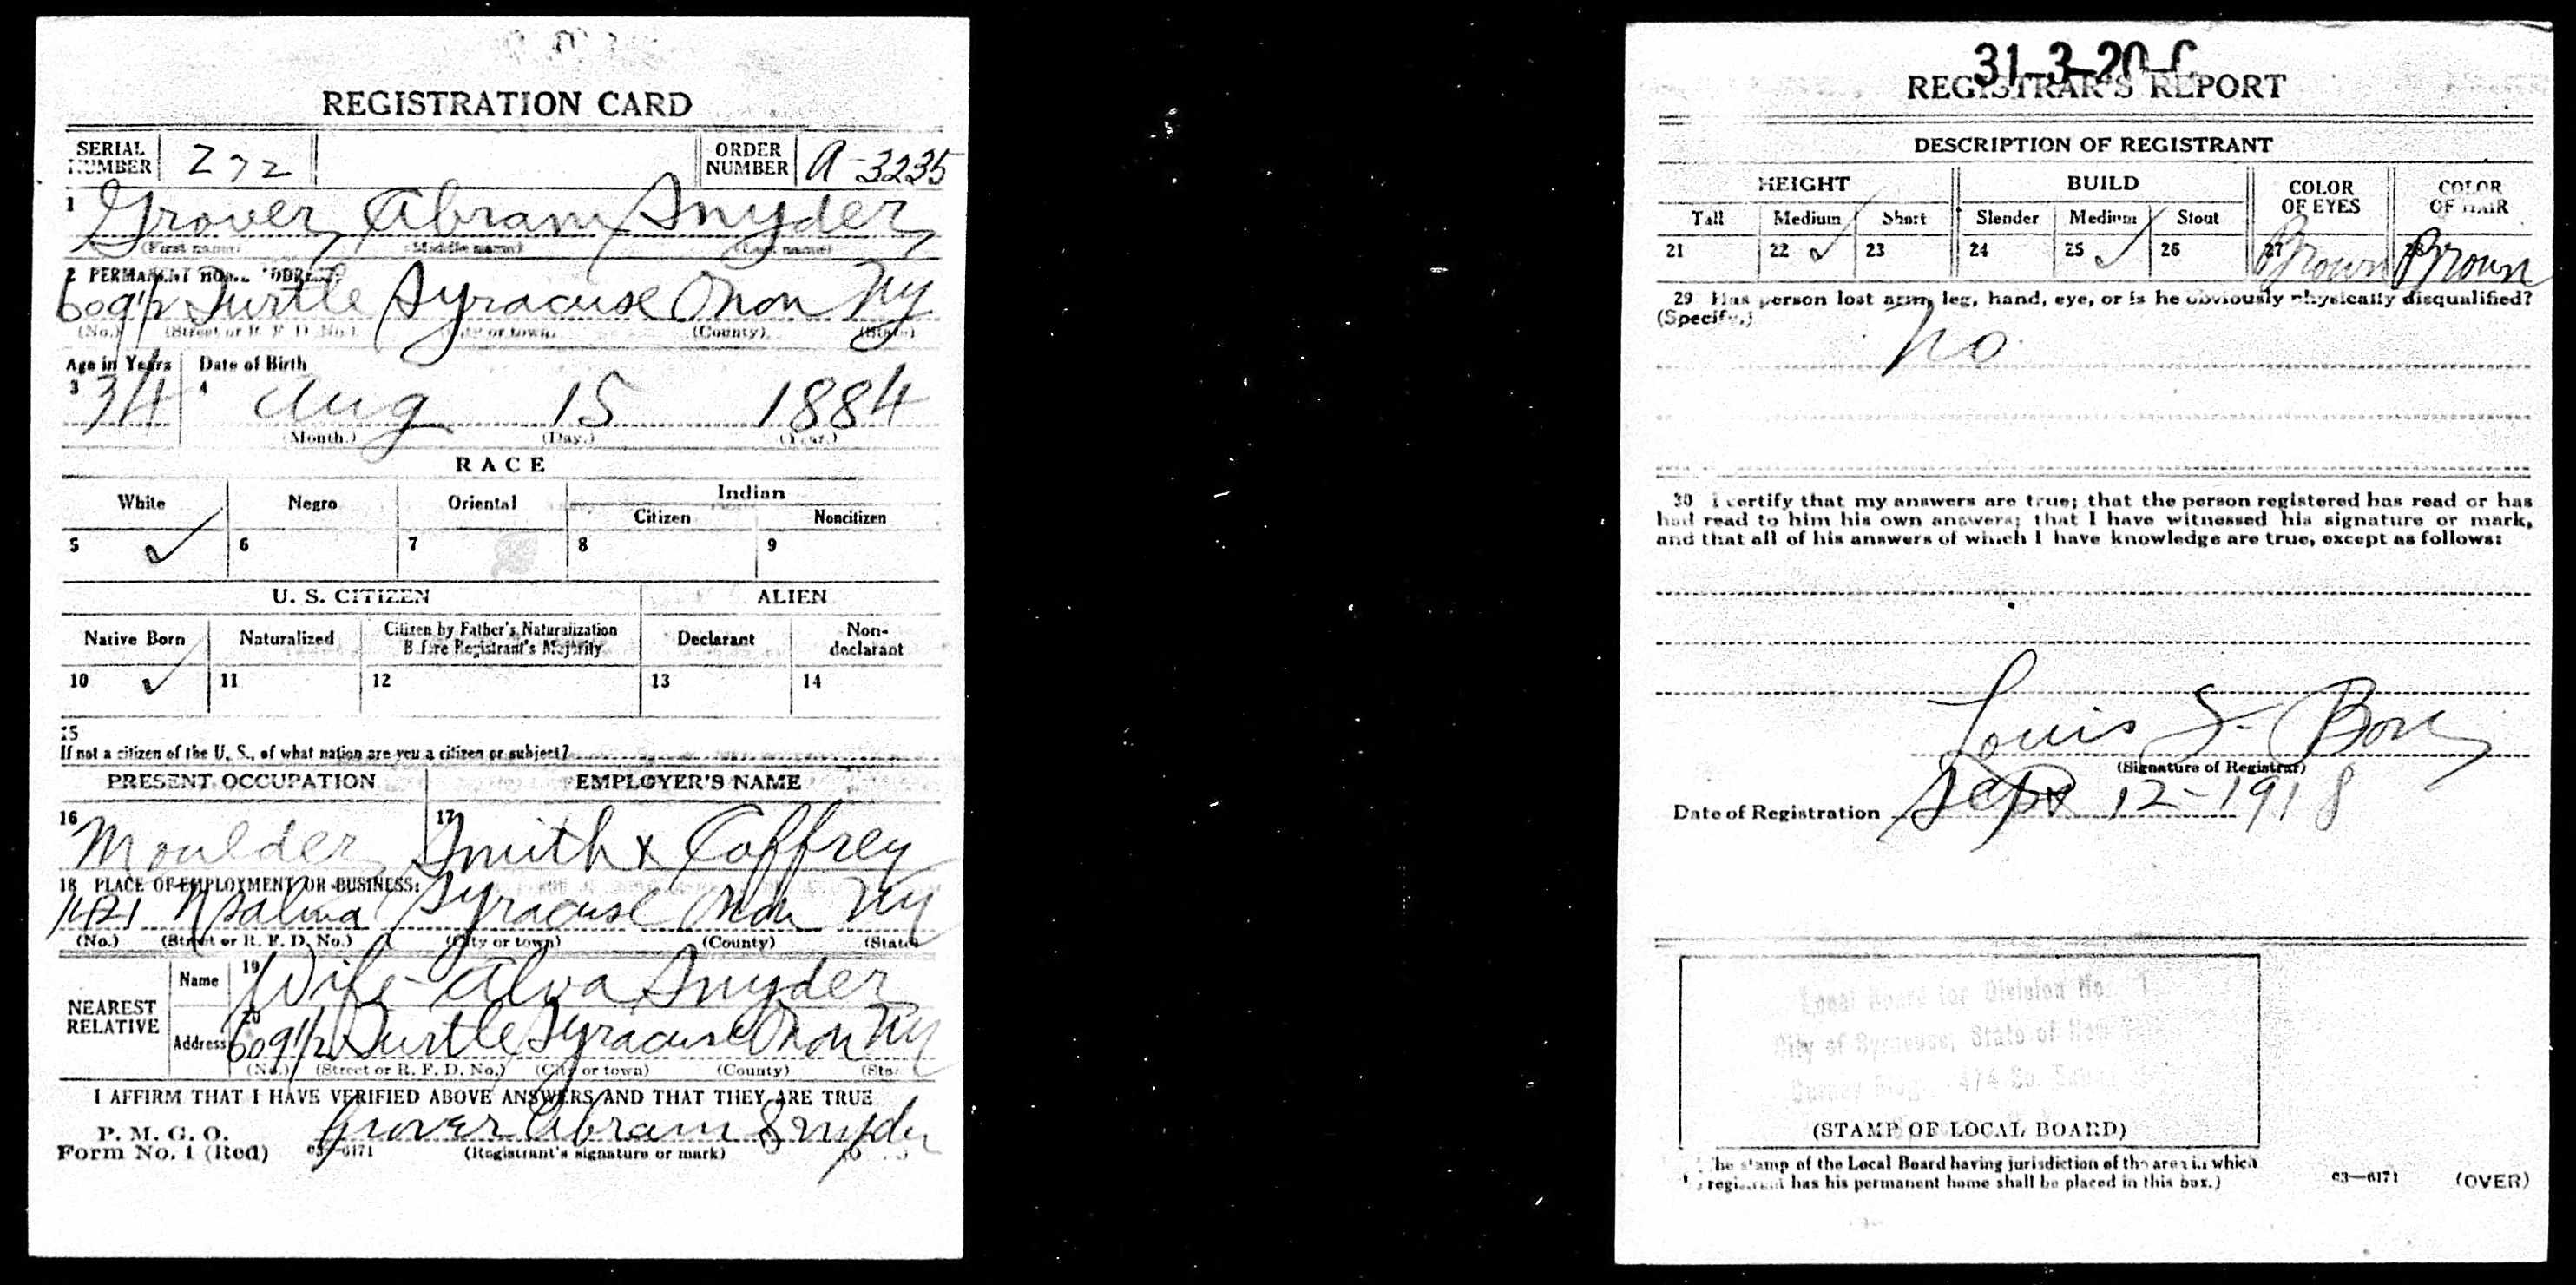 REGISTRATION CARD
SERIAL NUMBER 272 ORDER NUMBER A-3235
1 Grover Abram Snyder
(First name) (Middle name) (Last name)
2 PERMANENT HOME ADDRESS:
609 1/2 Turtle Syracuse Onon Ny
(No.) (Street or R. F. D. No.) (City or town) (County) (State)
Age in Years Date of Birth
3 34 4 Aug 15 1884
(Month.) (Day.) (Year.)
RACE
White Negro Oriental Indian
Citizen Noncitizen
5 ✓ 6 7 8 9
U. S. CITIZEN ALIEN
Native Born Naturalized Citizen by Father's Naturalization Before Registrant's Majority Declarant Non-declarant
10 ✓ 11 12 13 14
15
If not a citizen of the U. S., of what nation are you a citizen or subject?
PRESENT OCCUPATION EMPLOYER'S NAME
16 Moulder 17 Smith & Caffrey
18 PLACE OF EMPLOYMENT OR BUSINESS:
1421 N Salina Syracuse Onon Ny
(No.) (Street or R. F. D. No.) (City or town) (County) (State)
NEAREST RELATIVE
Name 19 Wife - Alva Snyder
Address 20 609 1/2 Turtle Syracuse Onon Ny
(No.) (Street or R. F. D. No.) (City or town) (County) (State)
I AFFIRM THAT I HAVE VERIFIED ABOVE ANSWERS AND THAT THEY ARE TRUE
P. M. G. O.
Form No. 1 (Red) 03—6171 Grover Abram Snyder
(Registrant's signature or mark)
31-3-20-C
REGISTRAR'S REPORT
DESCRIPTION OF REGISTRANT
HEIGHT BUILD COLOR OF EYES COLOR OF HAIR
Tall Medium Short Slender Medium Stout
21 22 ✓ 23 24 25 ✓ 26 27 Brown 28 Brown
29 Has person lost arm, leg, hand, eye, or is he obviously physically disqualified?
(Specify.)
no
30 I certify that my answers are true; that the person registered has read or has
had read to him his own answers; that I have witnessed his signature or mark,
and that all of his answers of which I have knowledge are true, except as follows:
Louis S.
(Signature of Registrar)
Date of Registration Sept 12-1918
Local Board for Division No.
City of Syracuse, State of New
474 So.
(STAMP OF LOCAL BOARD)
(The stamp of the Local Board having jurisdiction of the area in which
the registrant has his permanent home shall be placed in this box.)
03—6171 (OVER)